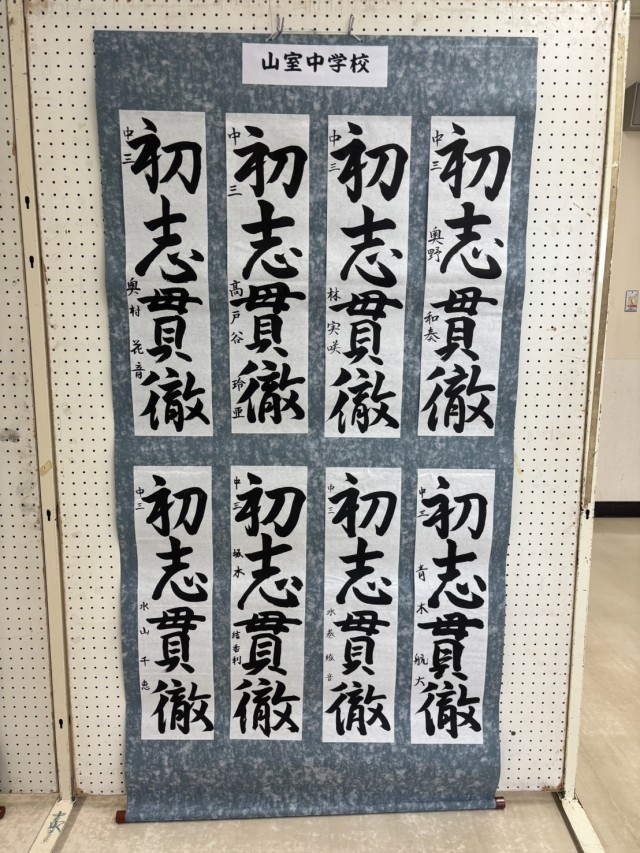 山室中学校
初志貫徹
中三 奥野 和泰
初志貫徹
中三 林 実咲
初志貫徹
中三 高戸谷 玲亜
初志貫徹
中三 奥村 花音
初志貫徹
中三 青木 航大
初志貫徹
中三
初志貫徹
中三
初志貫徹
中三 水山 千恵